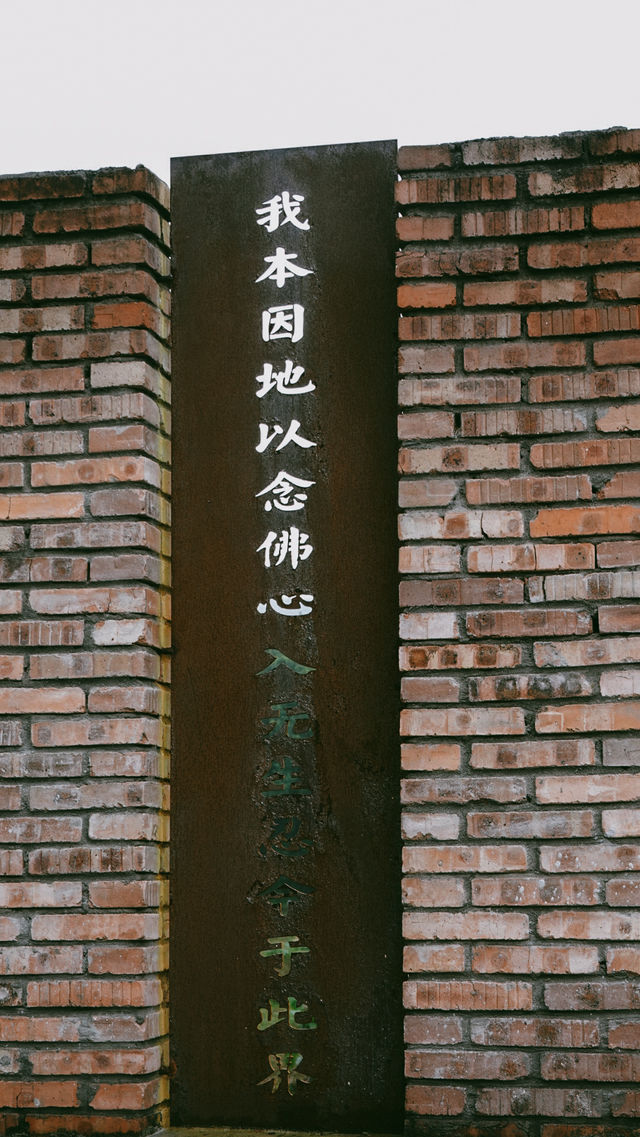 我本因地以念佛心入无生忍今于此界